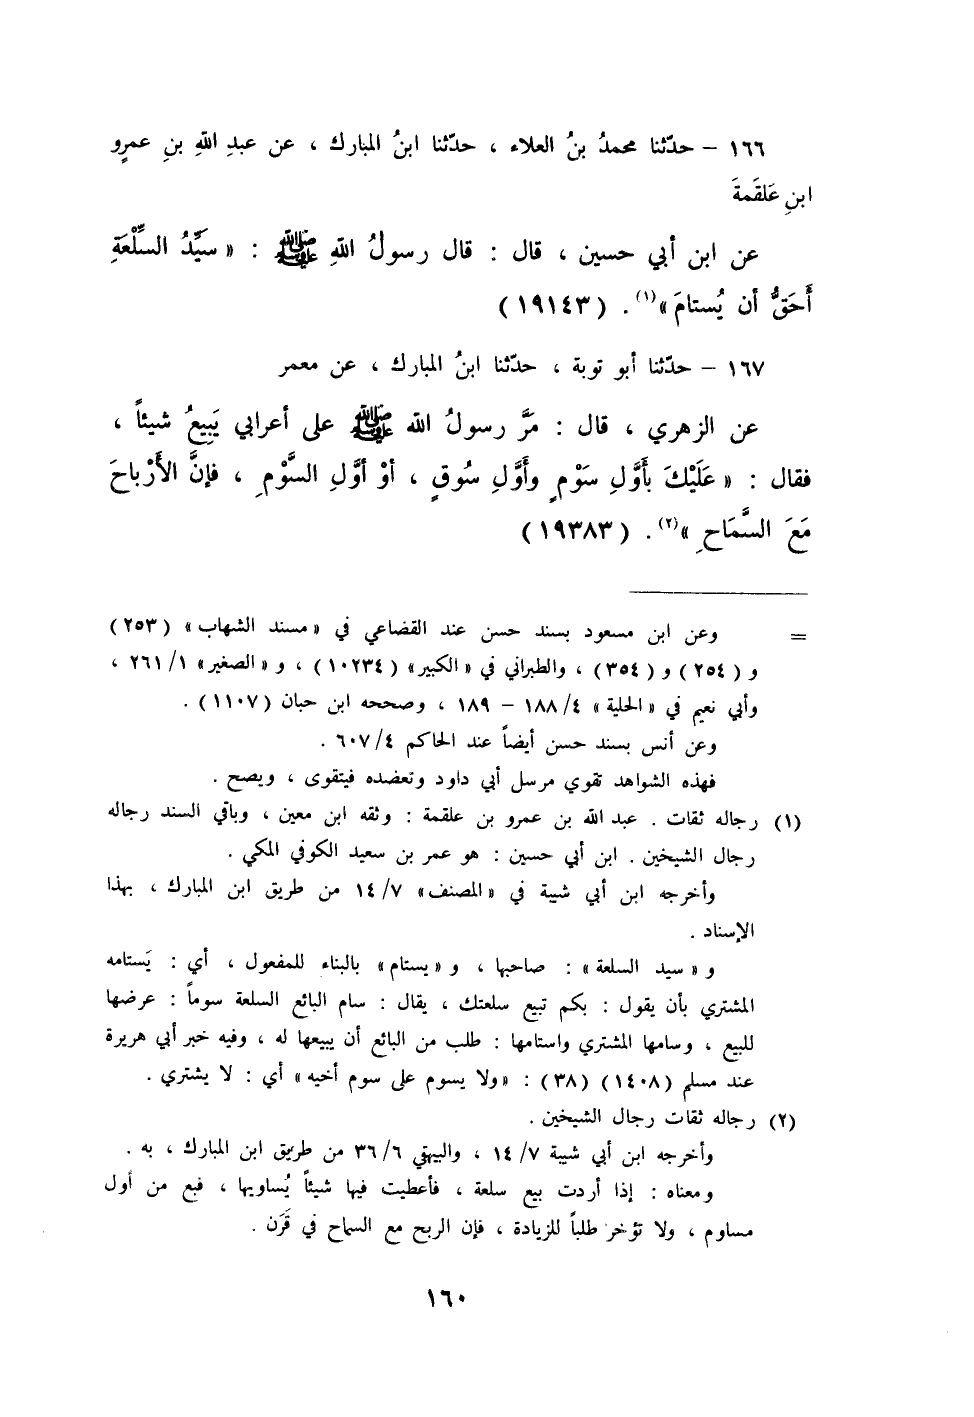 ١٦٦ – حدّثنا محمدُ بنُ العلاء ، حدّثنا ابنُ المبارك ، عن عبدِ اللهِ بنِ عمرٍو
ابنِ عَلقَمةَ
عن ابن أبي حسين ، قال : قال رسولُ اللهِ ﷺ : « سَيِّدُ السِّلْعَةِ
أَحَقُّ أن يُستامَ »(١) . ( ١٩١٤٣ )
١٦٧ – حدّثنا أبو توبة ، حدّثنا ابنُ المبارك ، عن معمر
عن الزهري ، قال : مَرَّ رسولُ الله ﷺ على أعرابي يَبِيعُ شيئاً ،
فقال : « عَلَيْكَ بأَوَّلِ سَوْمٍ وأَوَّلِ سُوقٍ ، أوْ أوَّلِ السَّوْمِ ، فإنَّ الأَرْباحَ
مَعَ السَّمَاحِ »(٢) . ( ١٩٣٨٣ )
= وعن ابن مسعود بسند حسن عند القضاعي في « مسند الشهاب » ( ٢٥٣ )
و ( ٢٥٤ ) و ( ٣٥٤ ) ، والطبراني في « الكبير » ( ١٠٢٣٤ ) ، و « الصغير » ١/ ٢٦١ ،
وأبي نعيم في « الحلية » ٤/ ١٨٨ – ١٨٩ ، وصححه ابن حبان ( ١١٠٧ ) .
وعن أنس بسند حسن أيضاً عند الحاكم ٤/ ٦٠٧ .
فهذه الشواهد تقوي مرسل أبي داود وتعضده فيتقوى ، ويصح .
(١) رجاله ثقات . عبد الله بن عمرو بن علقمة : وثقه ابن معين ، وباقي السند رجاله
رجال الشيخين . ابن أبي حسين : هو عمر بن سعيد الكوفي المكي .
وأخرجه ابن أبي شيبة في « المصنف » ٧/ ١٤ من طريق ابن المبارك ، بهذا
الإسناد .
و « سيد السلعة » : صاحبها ، و « يستام » بالبناء للمفعول ، أي : يَستامه
المشتري بأن يقول : بكم تبيع سلعتك ، يقال : سام البائع السلعة سوماً : عرضها
للبيع ، وسامها المشتري واستامها : طلب من البائع أن يبيعها له ، وفيه خبر أبي هريرة
عند مسلم ( ١٤٠٨ ) ( ٣٨ ) : « ولا يسوم على سوم أخيه » أي : لا يشتري .
(٢) رجاله ثقات رجال الشيخين .
وأخرجه ابن أبي شيبة ٧/ ١٤ ، والبيهقي ٦/ ٣٦ من طريق ابن المبارك ، به .
ومعناه : إذا أردت بيع سلعة ، فأعطيت فيها شيئاً يُساويها ، فبع من أول
مساوم ، ولا تؤخر طلباً للزيادة ، فإن الربح مع السماح في قَرَن .
١٦٠